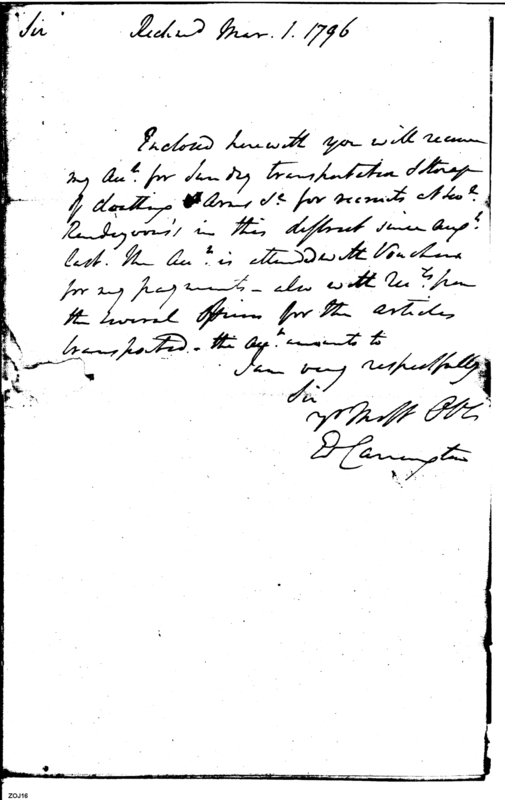 Sir Richmd Mar. 1. 1796
Enclosed herewith you will receive
my Acct. for Sundry transportation & Storage
of cloathing Arms &c for recruits at
Rendezvous's in this district since Augt.
last. the Acct. is attended with Vouchers
for my payments – also with Rects. from
the several Officers for the articles
transported – the amounts to
I am very respectfully
Sir
yr Most Obt
Ed Carrington
ZOJ16